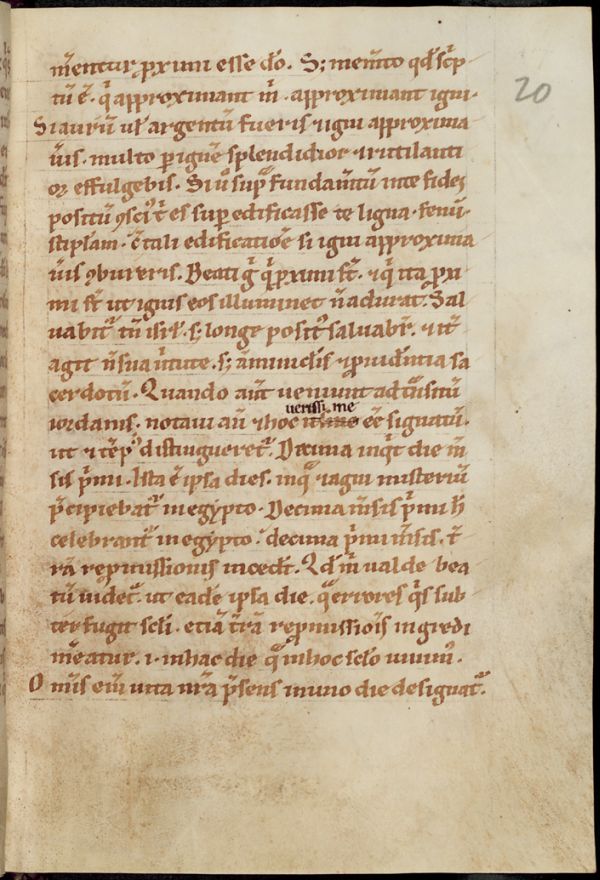 m̄entur p̱ximi esse dō. S; mem̄to qd̄ sc̄p
tū ē. q̄ approximant m̄. approximant igni.
20
Si aurū ul̄ argentū fueris ⁊ igni approxima
u̅is. multo p̱ ignē splendidior ⁊ rutilanti
oꝝ effulgebis. Si u̅o sup̄ fundam̄tū inte fidei
positū es sup edificasse te ligna. fenū.
stipulam. tali edificatiōe si igni approxima
u̅is ꝯbureris. Beati g̅ q̄ p̱ximi s̄t. ⁊ q̄ ita p̱xi
mi s̄t ut ignis eos illuminet n̄ adurat. Sal
uabit᷑ tn̄ isrl̄. s; longe posit᷑ saluabr̄. ⁊ it᷑
agit n̄ sua u̅tute. s; ām̄inclis ⁊ prudēntia sa
cerdotū. Quando aūt ueniunt ad t̄nsitū
iordanis. notaui aū ⁊ hoc uerissime eē signatū.
ut ⁊ tēp᷒ distingueret᷑. Decima inq̄t die m̄
sis p̄mi. Ista ē ipsa dies. inq̄ ⁊ agni misteriū
p̄cipiebat᷑ in egypto. Decima m̄sis p̄mi h̄
celebrant᷑ in egypto. decima p̄mi m̄sis. t̄
rā repmissionis incedt̄. Qd̄ m̄ ualde bea
tū uidet᷑. ut eadē ipsa die. q̄ errores q̄s sub
terfugit sc̄li. etiā t̄rā repmissiōis ingredi
m̄eatur. i. in hac die q̄ in hoc sc̄lo uiuim᷒.
Om̄is eni̅ uita nr̄a p̄sens in uno die designat᷑.